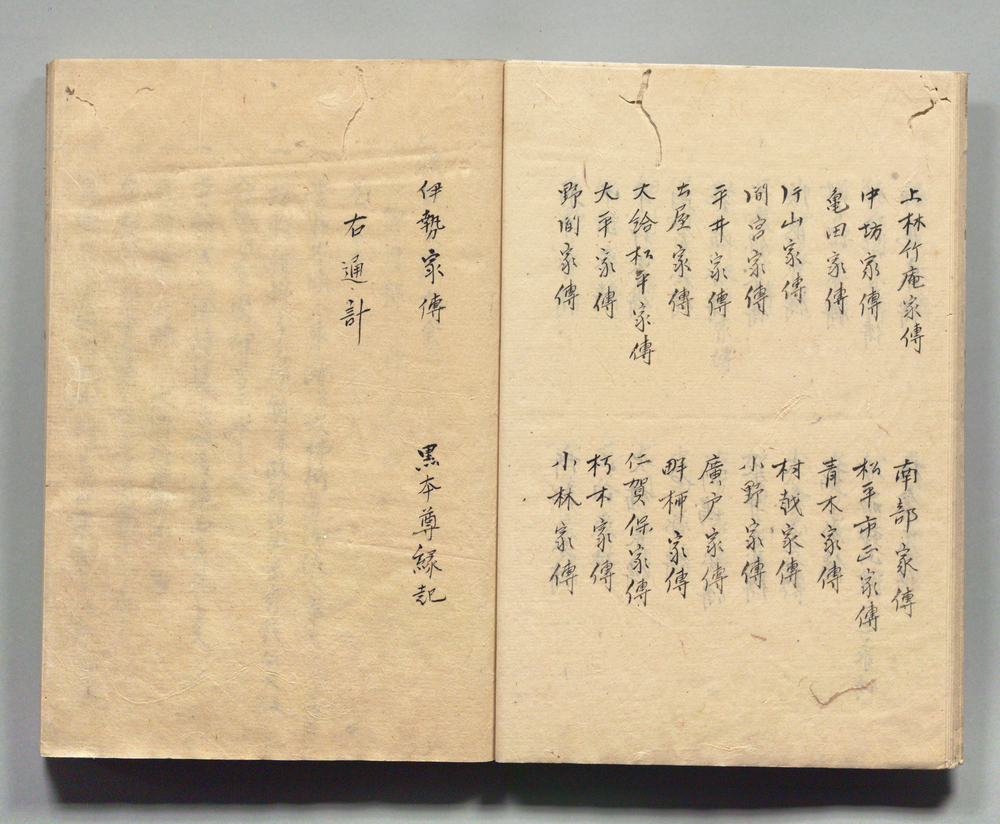 上林竹庵家傳
南部家傳
中坊家傳
松平市正家傳
亀田家傳
青木家傳
竹山家傳
村越家傳
間宮家傳
小野家傳
平井家傳
廣戸家傳
土屋家傳
畔柳家傳
大給松平家傳
仁賀保家傳
大平家傳
朽木家傳
野間家傳
小林家傳
伊勢家傳
黒本尊縁起
右通計